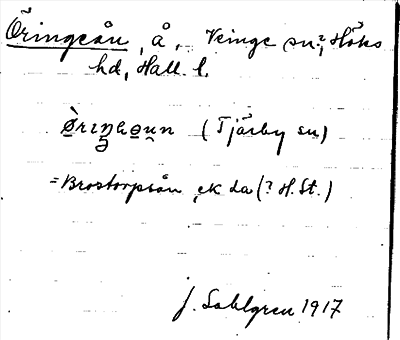 Öringeån, å, Veinge sn?, Höks
hd, Hall. l.
(Tjärby sn)
= Brostorpsån, ek da (? H. St.)
J. Sahlgren 1917